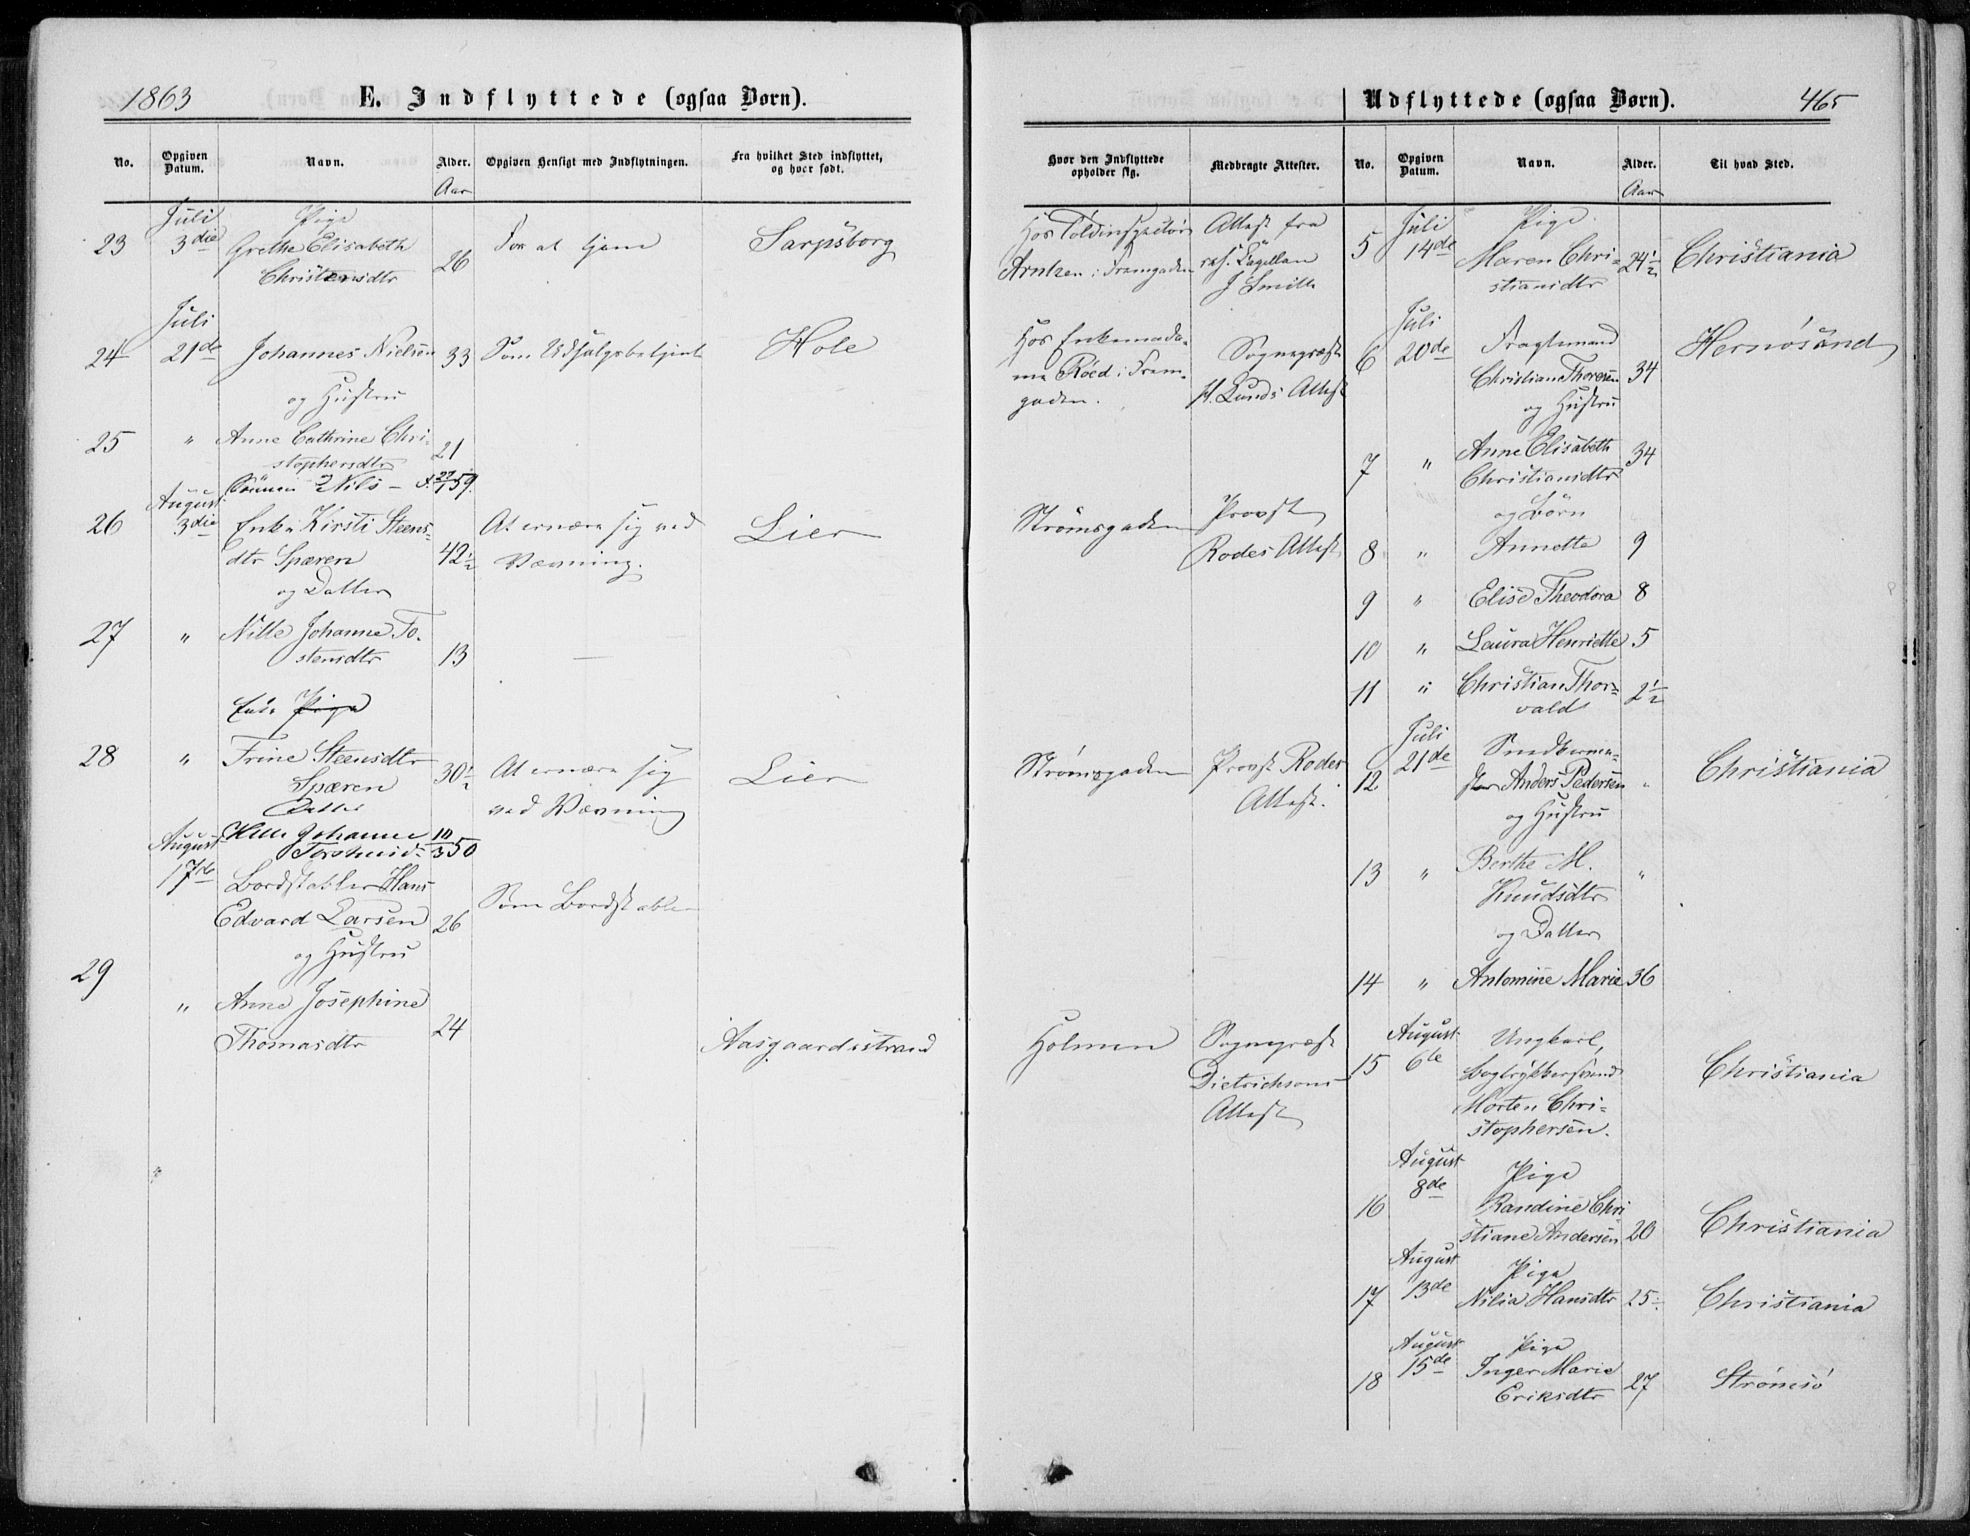 1863 E. Indflyttede (ogsaa Børn).
No. Opgiven Datum. Navn. Alder. Opgiven Hensigt med Indflytningen. Fra hvilket Sted indflyttet, og hvor født.
Aar
23 Juli 3die Pige
Grethe Elisabeth
Christensdtr 26 For at tjene Sarpsborg
24 Juli 21de Johannes Nielsen 33 Som Udsalgsbetjent Hole
og Hustru
25 " Anne Cathrine Chri-
stophersdtr 21
Sønnen Nils - f. 27/1 59.
26 August 3die Enke Kirsti Steens-
dtr Spæren 42½ At ernære sig ved
Vævning. Lier
og Datter
27 " Nille Johanne To-
stensdtr 13 —
Enke Pige
28 " Trine Steensdtr
Spæren 30½ At ernære sig
ved Vævning Lier
Datter
Johanne
50
August 17de Bordstabler Hans
Edvard Larsen 26 Som Bordstabler
og Hustru
29 " Anne Josephine
Thomasdtr 24 Aasgaardsstrand
Udflyttede (ogsaa Børn). 465
Hvor den Indflyttede opholder sig. Medbragte Attester. No. Opgiven Datum. Navn. Alder. Til hvad Sted.
Aar
Hos Toldinspektør
Arntzen i Framgaden
Attest fra
res. Kapellan
J Smith
Hos Enkemada-
me Røed i Fram-
gaden.
Sognepræst
H. Lunds Attest
Strømsgaden
Provst
Rodes Attest
Strømsgaden
Provst Rodes
Attest.
Holmen
Sognepræst
Dietrichsons
Attest
5 Juli 14de Pige
Maren Chri-
stiansdtr 24½ Christiania
6 Juli 20de Fragtemand
Christian Thoresen 34 Hernøsand
og Hustru
7 " Anne Elisabeth
Christiansdtr 34
og Børn
8 " Annette 9
9 " Elise Theodora 8
10 " Laura Henriette 5
11 " Christian Thor-
vald 2½
12 Juli 21de
Anders Pedersen " Christiania
og Hustru
13 " Berthe M.
Knudsdtr "
og Datter
14 " Antomine Marie 36
15 August 6te Ungkarl,
Bogtrykkersvend
Morten Chri-
stophersen. Christiania
16 August 8de Pige
Randine Chri
stiane Andersen 20 Christiania
17 August 13de Pige
Nilia Hansdtr 25½ Christiania
18 August 15de Pige
Inger Marie
Eriksdtr 27 Strømsø